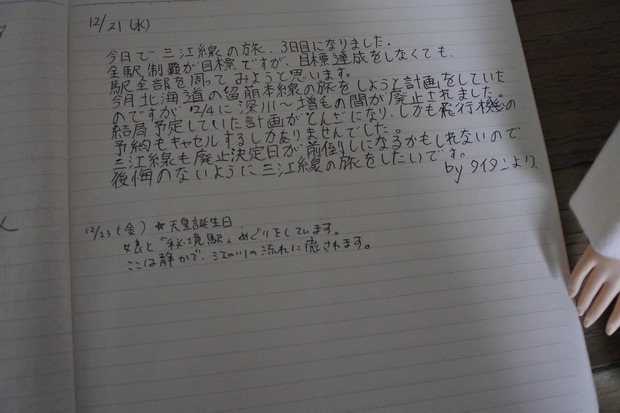 12/21(水)
今日で三江線の旅、3日目になりました。
全駅制覇が目標ですが、目標達成をしなくても、
駅全部を周ってみようと思います。
今月北海道の留萌本線の旅をしようと計画をしていた
のですが12/4に深川〜増毛の間が廃止されました。
結局予定していた計画がとんざになり、しかも飛行機の
予約もキャセルするしかありませんでした。
三江線も廃止決定日が前倒しになるかもしれないので
後悔のないように三江線の旅をしたいです。
by タイタンより、
12/23(金) ☆天皇誕生日
娘と「秘境駅」めぐりをしています。
ここは静かで、江の川の流れに癒されます。